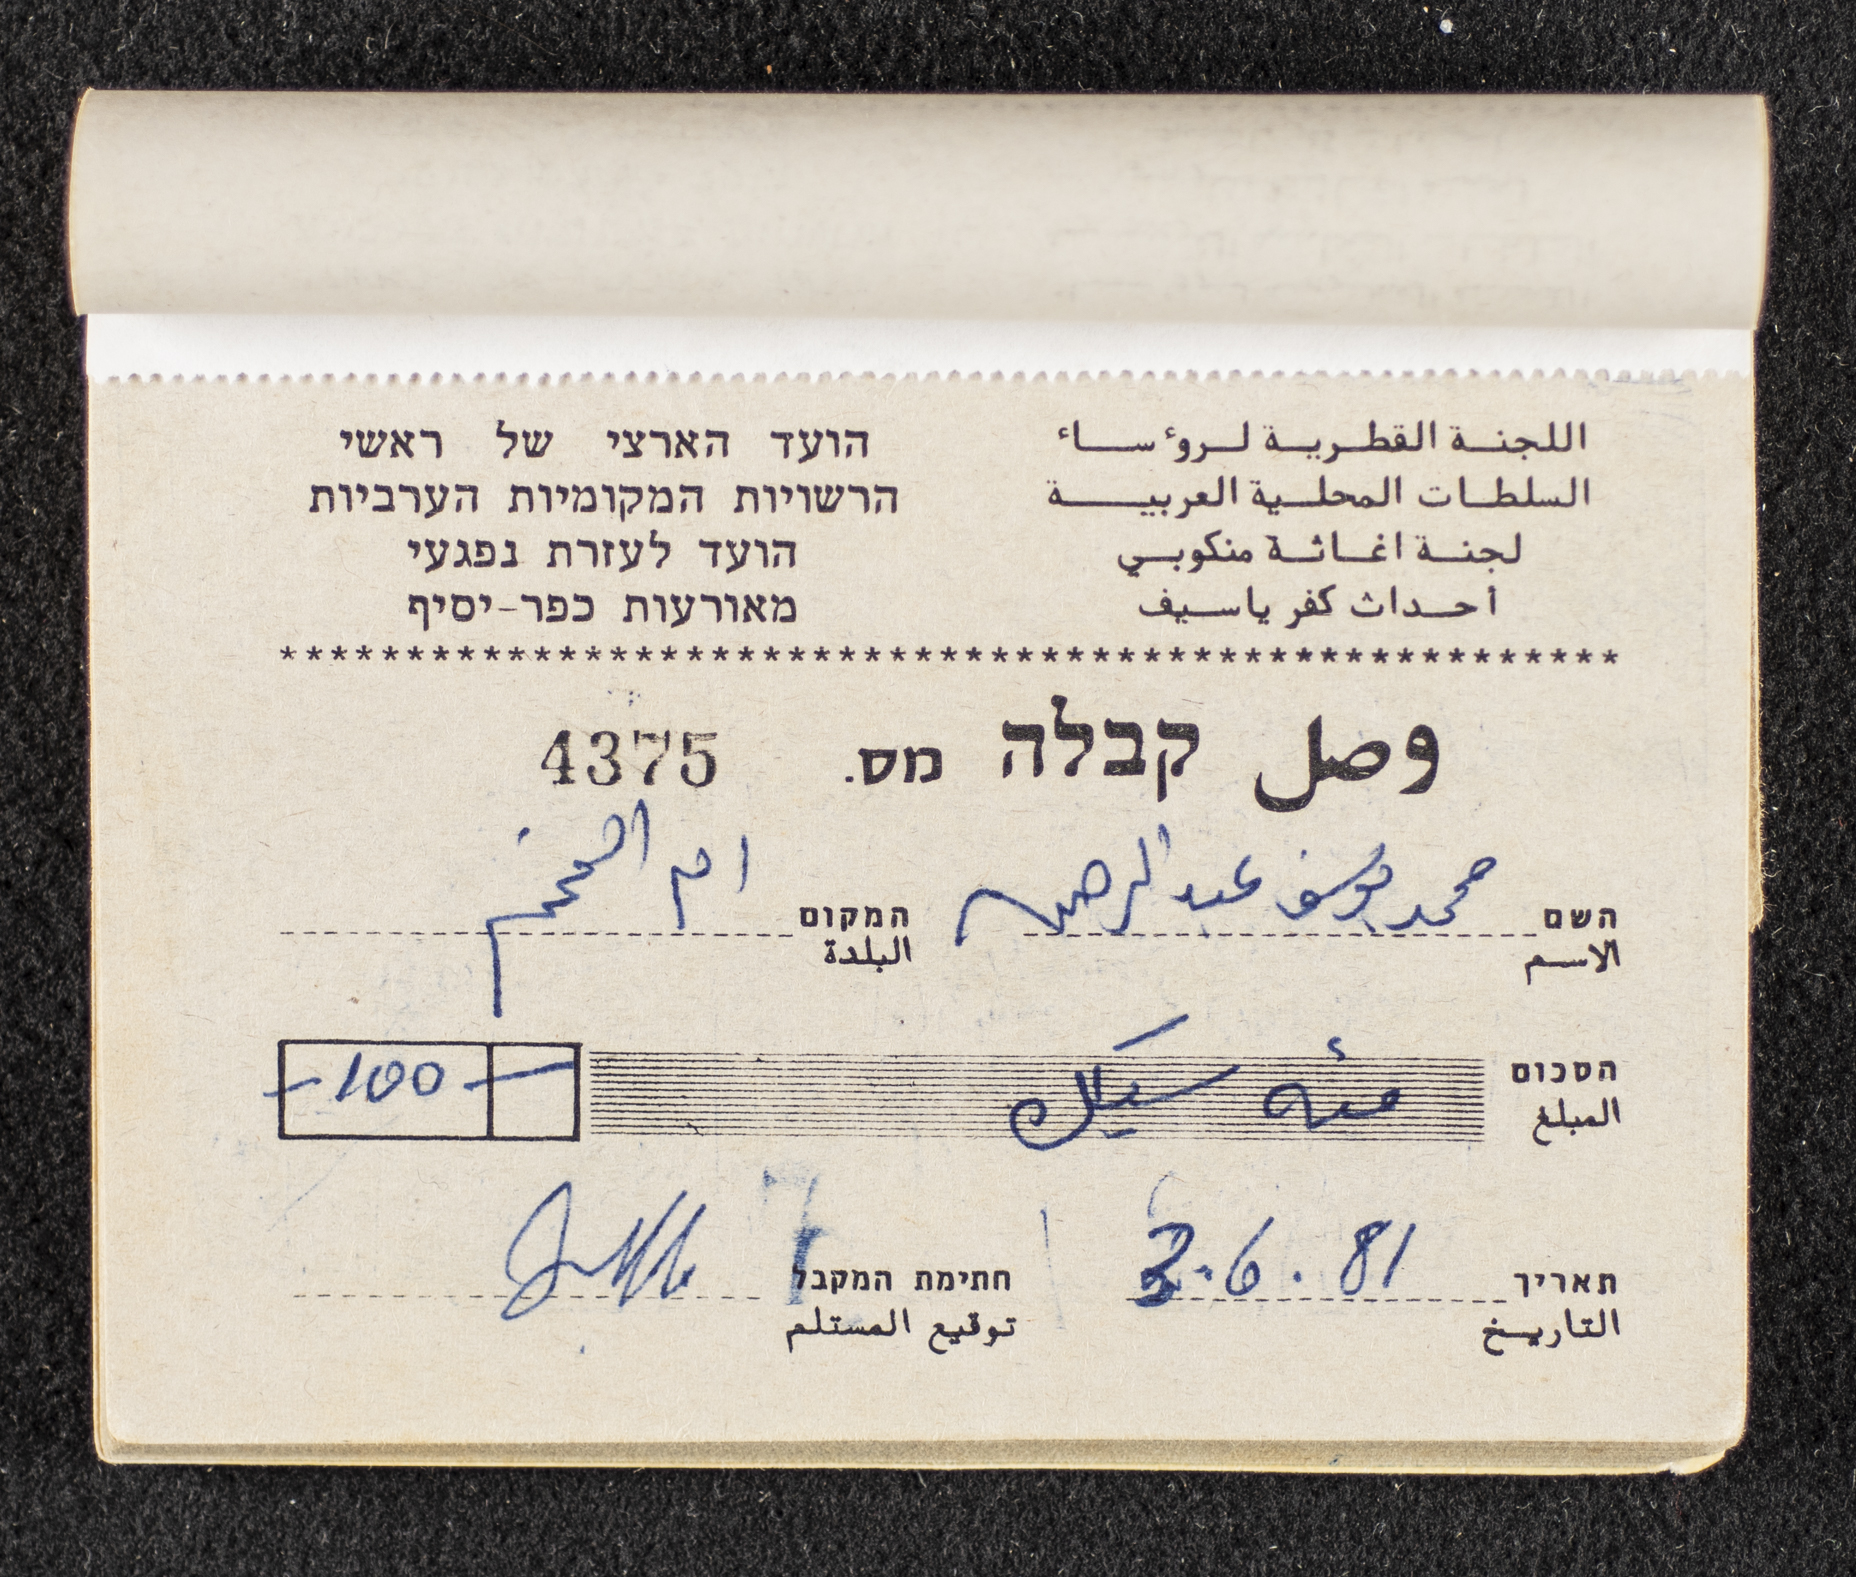 اللجنة القطرية لروءساء
السلطات المحلية العربية
لجنة اغاثة منكوبي
أحداث كفر ياسيف
הועד הארצי של ראשי
הרשויות המקומיות הערביות
הועד לעזרת נפגעי
מאורעות כפר-יסיף
*****************************************************
وصل קבלה מס. 4375
השם محمد يوسف عبد الرحمن המקום ام الفحم
الاسم البلدة
הסכום مئة شيكل -100-
المبلغ
תאריך 3.6.81 חתימת המקבל
التاريخ توقيع المستلم